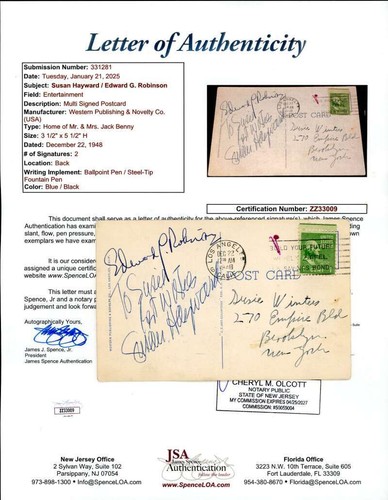 Letter of Authenticity
Submission Number: 331281
Date: Tuesday, January 21, 2025
Subject: Susan Hayward / Edward G. Robinson
Field: Entertainment
Description: Multi Signed Postcard
Manufacturer: Western Publishing & Novelty Co.
(USA)
Type: Home of Mr. & Mrs. Jack Benny
Size: 3 1/2" x 5 1/2" H
Date: December 22, 1948
# of Signatures: 2
Location: Back
Writing Implement: Ballpoint Pen / Steel-Tip
Fountain Pen
Color: Blue / Black
POST CARD
Certification Number: ZZ33009
This document shall serve as a letter of authenticity for the above-referenced signature(s), which James Spence
Authentication has exam
slant, flow, pen pressure,
exemplars we have exam
It is our conside
assigned a unique certific
website at www.SpenceLOA.com
This letter must a
Spence, Jr and a notary p
judgement and look forward
Autographically Yours,
James J. Spence, Jr.
President
James Spence Authentication
ZZ33009
Edward G. Robinson
Best Wishes
Susan Hayward
LOS ANGELES
DEC 22
BUILD YOUR FUTURE
POST CARD
Winters
270 Empire Blvd
Brooklyn
New York
CHERYL M. OLCOTT
NOTARY PUBLIC
STATE OF NEW JERSEY
MY COMMISSION EXPIRES 04/25/2027
COMMISSION #50059004
New Jersey Office
2 Sylvan Way, Suite 102
Parsippany, NJ 07054
973-898-1300 • Info@SpenceLOA.com
JSA
James Spence
Authentication
www.SpenceLOA.com
Florida Office
3223 N.W. 10th Terrace, Suite 605
Fort Lauderdale, FL 33309
954-380-8670 • Florida@SpenceLOA.com